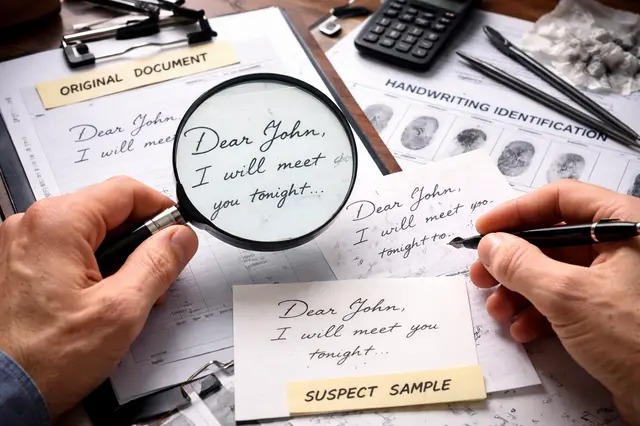 ORIGINAL DOCUMENT
Dear John,
I will mee
Dear John,
I will meet
you tonight...
HANDWRITING IDENTIFICATION
Dear John,
I will meet
tonight to...
Dear John,
I will meet you
tonight...
SUSPECT SAMPLE